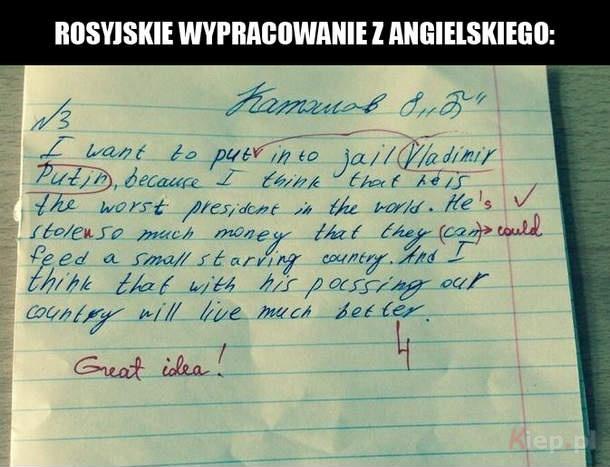 ROSYJSKIE WYPRACOWANIE Z ANGIELSKIEGO:
8 „Б"
№3
I want to put into jail Vladimir
Putin, because I think that he is
the worst president in the world. He's
stolen so much money that they (can) could
feed a small starving country. And I
think that with his passing our
country will live much better.
4
Great idea!
Kiep.pl